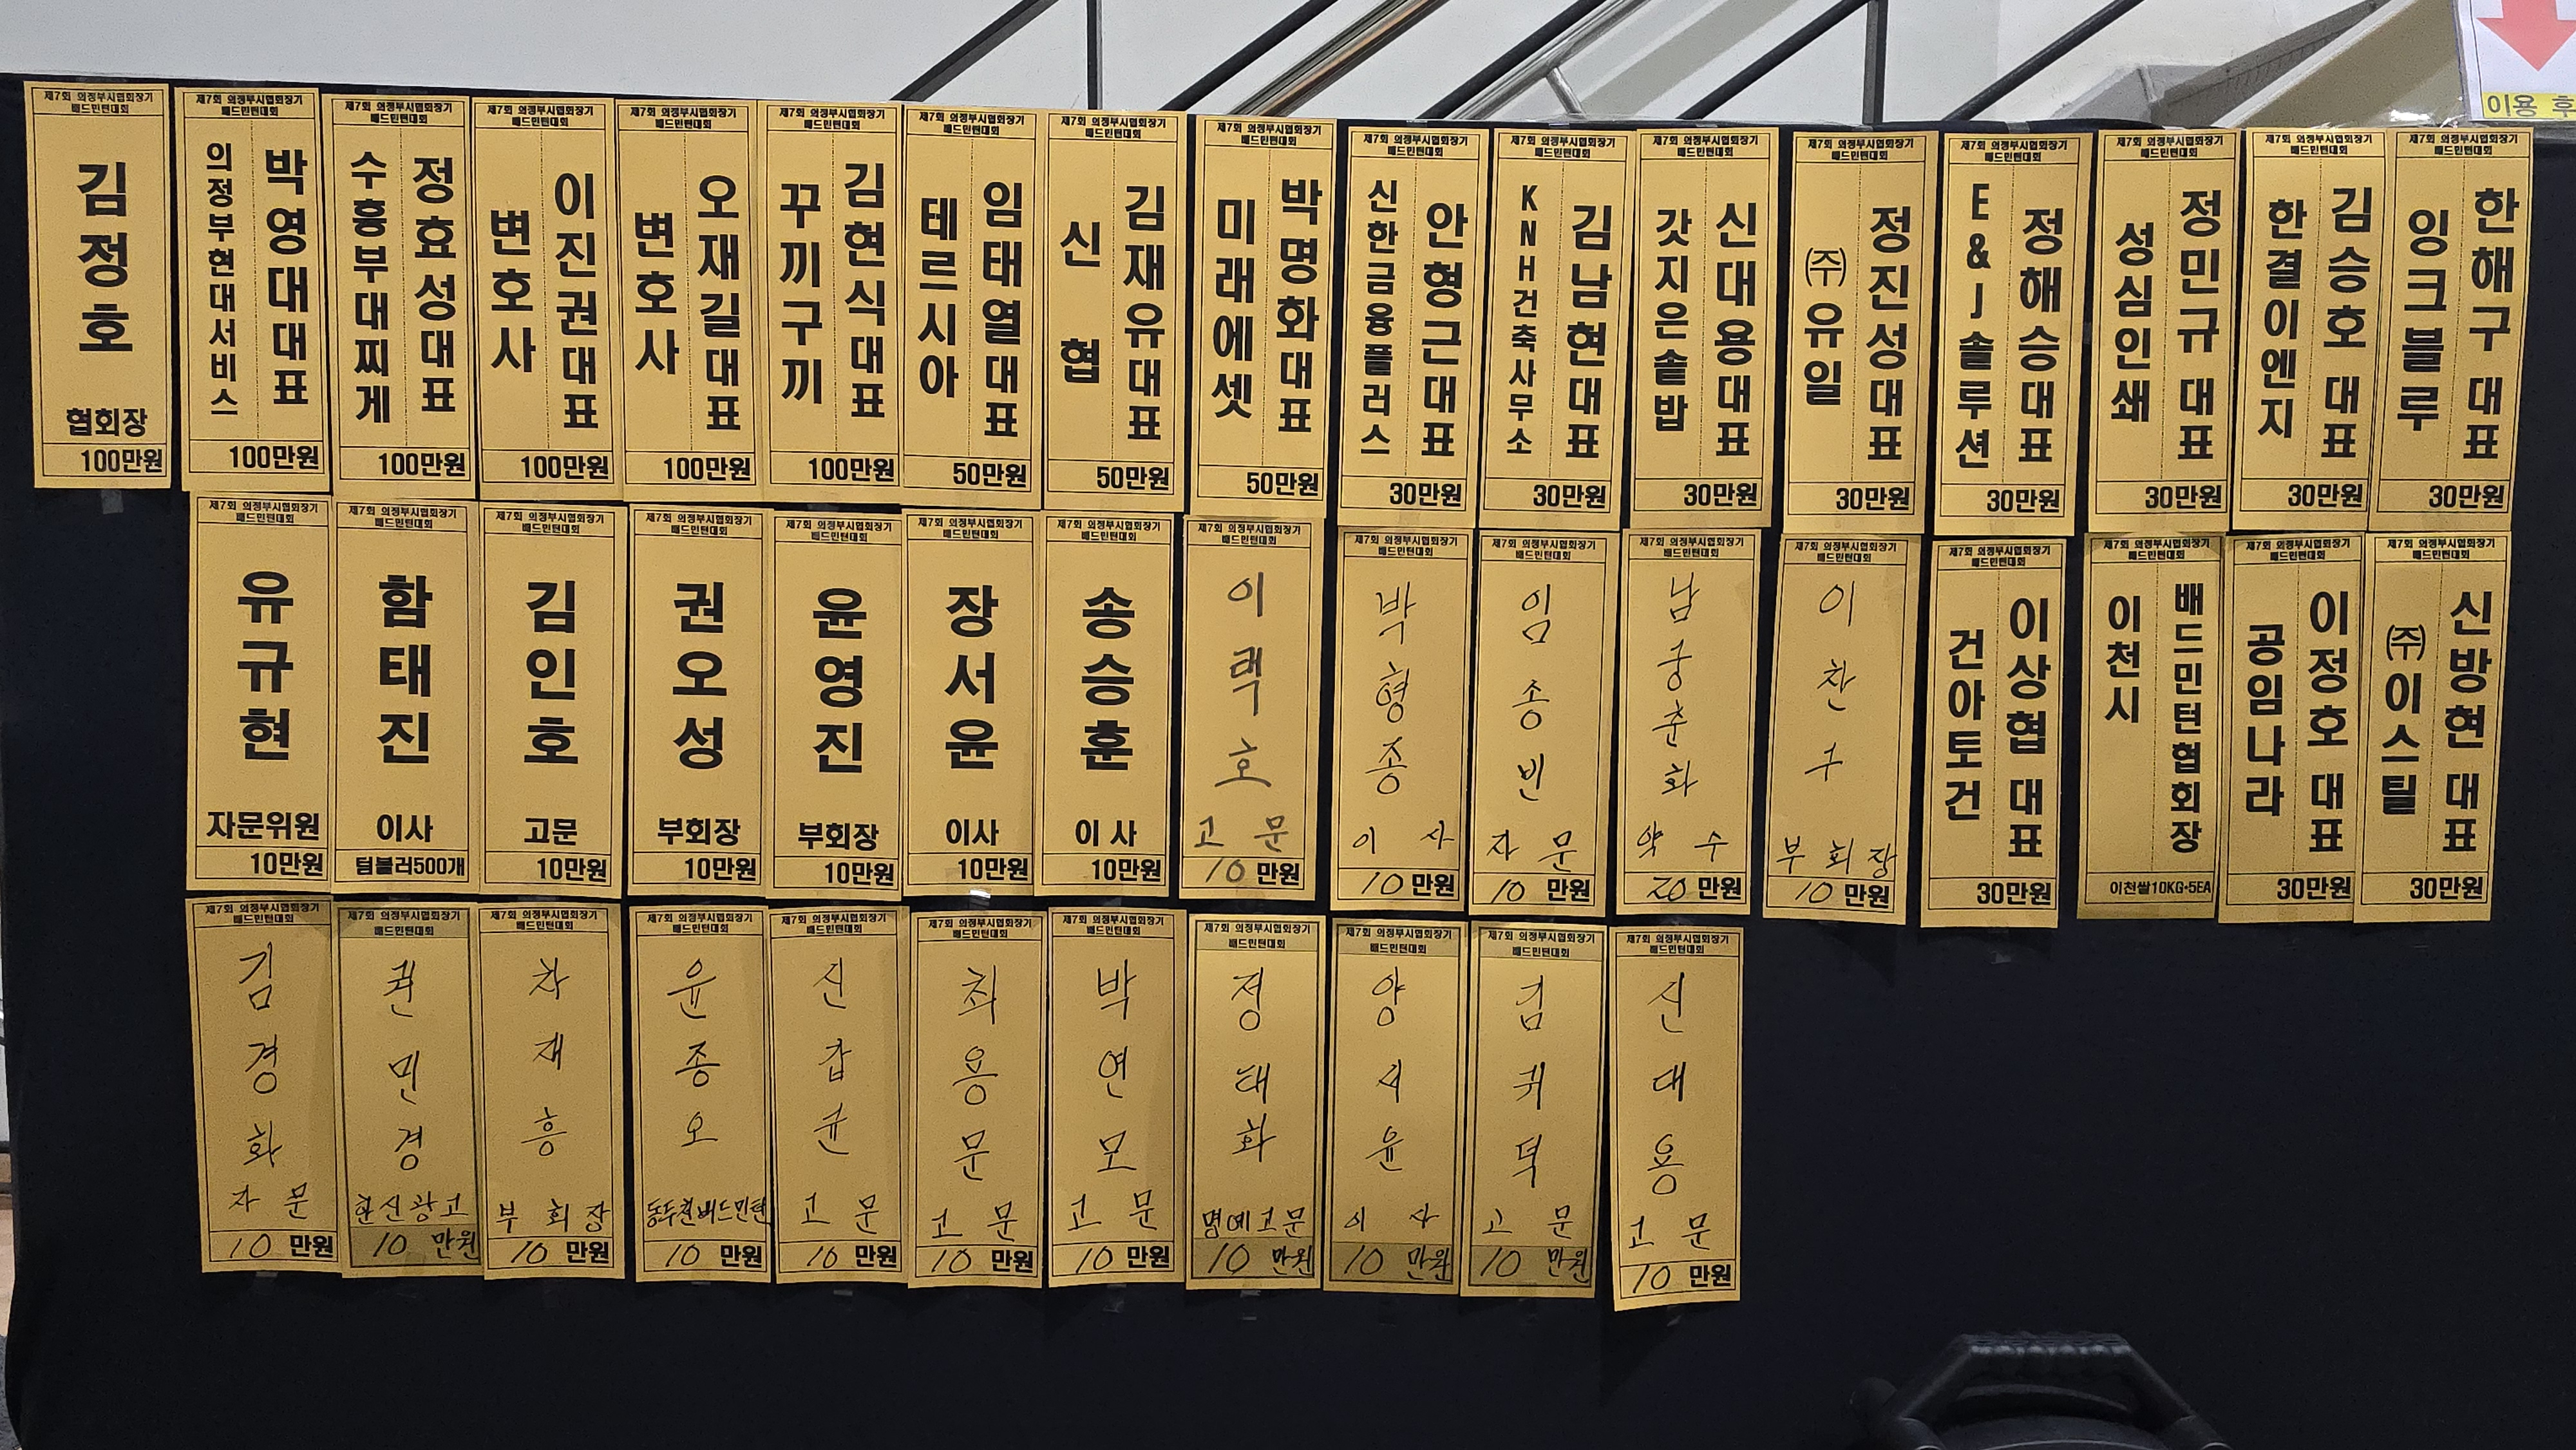 이용 후
제7회 의정부시협회장기
배드민턴대회
김정호
협회장
100만원
제7회 의정부시협회장기
배드민턴대회
박영대대표
의정부현대서비스
100만원
제7회 의정부시협회장기
배드민턴대회
정효성대표
수흥부대찌게
100만원
제7회 의정부시협회장기
배드민턴대회
이진권대표
변호사
100만원
제7회 의정부시협회장기
배드민턴대회
오재길대표
변호사
100만원
제7회 의정부시협회장기
배드민턴대회
김현식대표
꾸끼구끼
100만원
제7회 의정부시협회장기
배드민턴대회
임태열대표
테르시아
50만원
제7회 의정부시협회장기
배드민턴대회
김재유대표
신협
50만원
제7회 의정부시협회장기
배드민턴대회
박명화대표
미래에셋
50만원
제7회 의정부시협회장기
배드민턴대회
안형근대표
신한금융플러스
30만원
제7회 의정부시협회장기
배드민턴대회
김남현대표
KNH건축사무소
30만원
제7회 의정부시협회장기
배드민턴대회
신대용대표
갓지은솥밥
30만원
제7회 의정부시협회장기
배드민턴대회
정진성대표
㈜유일
30만원
제7회 의정부시협회장기
배드민턴대회
정해승대표
E&J솔루션
30만원
제7회 의정부시협회장기
배드민턴대회
정민규 대표
성심인쇄
30만원
제7회 의정부시협회장기
배드민턴대회
김승호 대표
한결이엔지
30만원
제7회 의정부시협회장기
배드민턴대회
한해구 대표
잉크블루
30만원
제7회 의정부시협회장기
배드민턴대회
유규현
자문위원
10만원
제7회 의정부시협회장기
배드민턴대회
함태진
이사
텀블러500개
제7회 의정부시협회장기
배드민턴대회
김인호
고문
10만원
제7회 의정부시협회장기
배드민턴대회
권오성
부회장
10만원
제7회 의정부시협회장기
배드민턴대회
윤영진
부회장
10만원
제7회 의정부시협회장기
배드민턴대회
장서윤
이사
10만원
제7회 의정부시협회장기
배드민턴대회
송승훈
이 사
10만원
제7회 의정부시협회장기
배드민턴대회
이택호
고 문
10 만원
제7회 의정부시협회장기
배드민턴대회
박형종
이 사
10 만원
제7회 의정부시협회장기
배드민턴대회
임종빈
자 문
10 만원
제7회 의정부시협회장기
배드민턴대회
남궁춘화
약 수
20 만원
제7회 의정부시협회장기
배드민턴대회
이찬구
부 회 장
10 만원
제7회 의정부시협회장기
배드민턴대회
이상협 대표
건아토건
30만원
제7회 의정부시협회장기
배드민턴대회
배드민턴협회장
이천시
이천쌀10KG*5EA
제7회 의정부시협회장기
배드민턴대회
이정호 대표
공임나라
30만원
제7회 의정부시협회장기
배드민턴대회
신방현 대표
㈜이스틸
30만원
제7회 의정부시협회장기
배드민턴대회
김경화
자 문
10 만원
제7회 의정부시협회장기
배드민턴대회
권민경
한신광고
10 만원
제7회 의정부시협회장기
배드민턴대회
차재흥
부 회 장
10 만원
제7회 의정부시협회장기
배드민턴대회
윤종오
동두천배드민턴
10 만원
제7회 의정부시협회장기
배드민턴대회
신갑균
고 문
10 만원
제7회 의정부시협회장기
배드민턴대회
최용문
고 문
10 만원
제7회 의정부시협회장기
배드민턴대회
박연모
고 문
10 만원
제7회 의정부시협회장기
배드민턴대회
정태화
명예고문
10 만원
제7회 의정부시협회장기
배드민턴대회
양서윤
이 사
10 만원
제7회 의정부시협회장기
배드민턴대회
김귀덕
고 문
10 만원
제7회 의정부시협회장기
배드민턴대회
신대용
고 문
10 만원